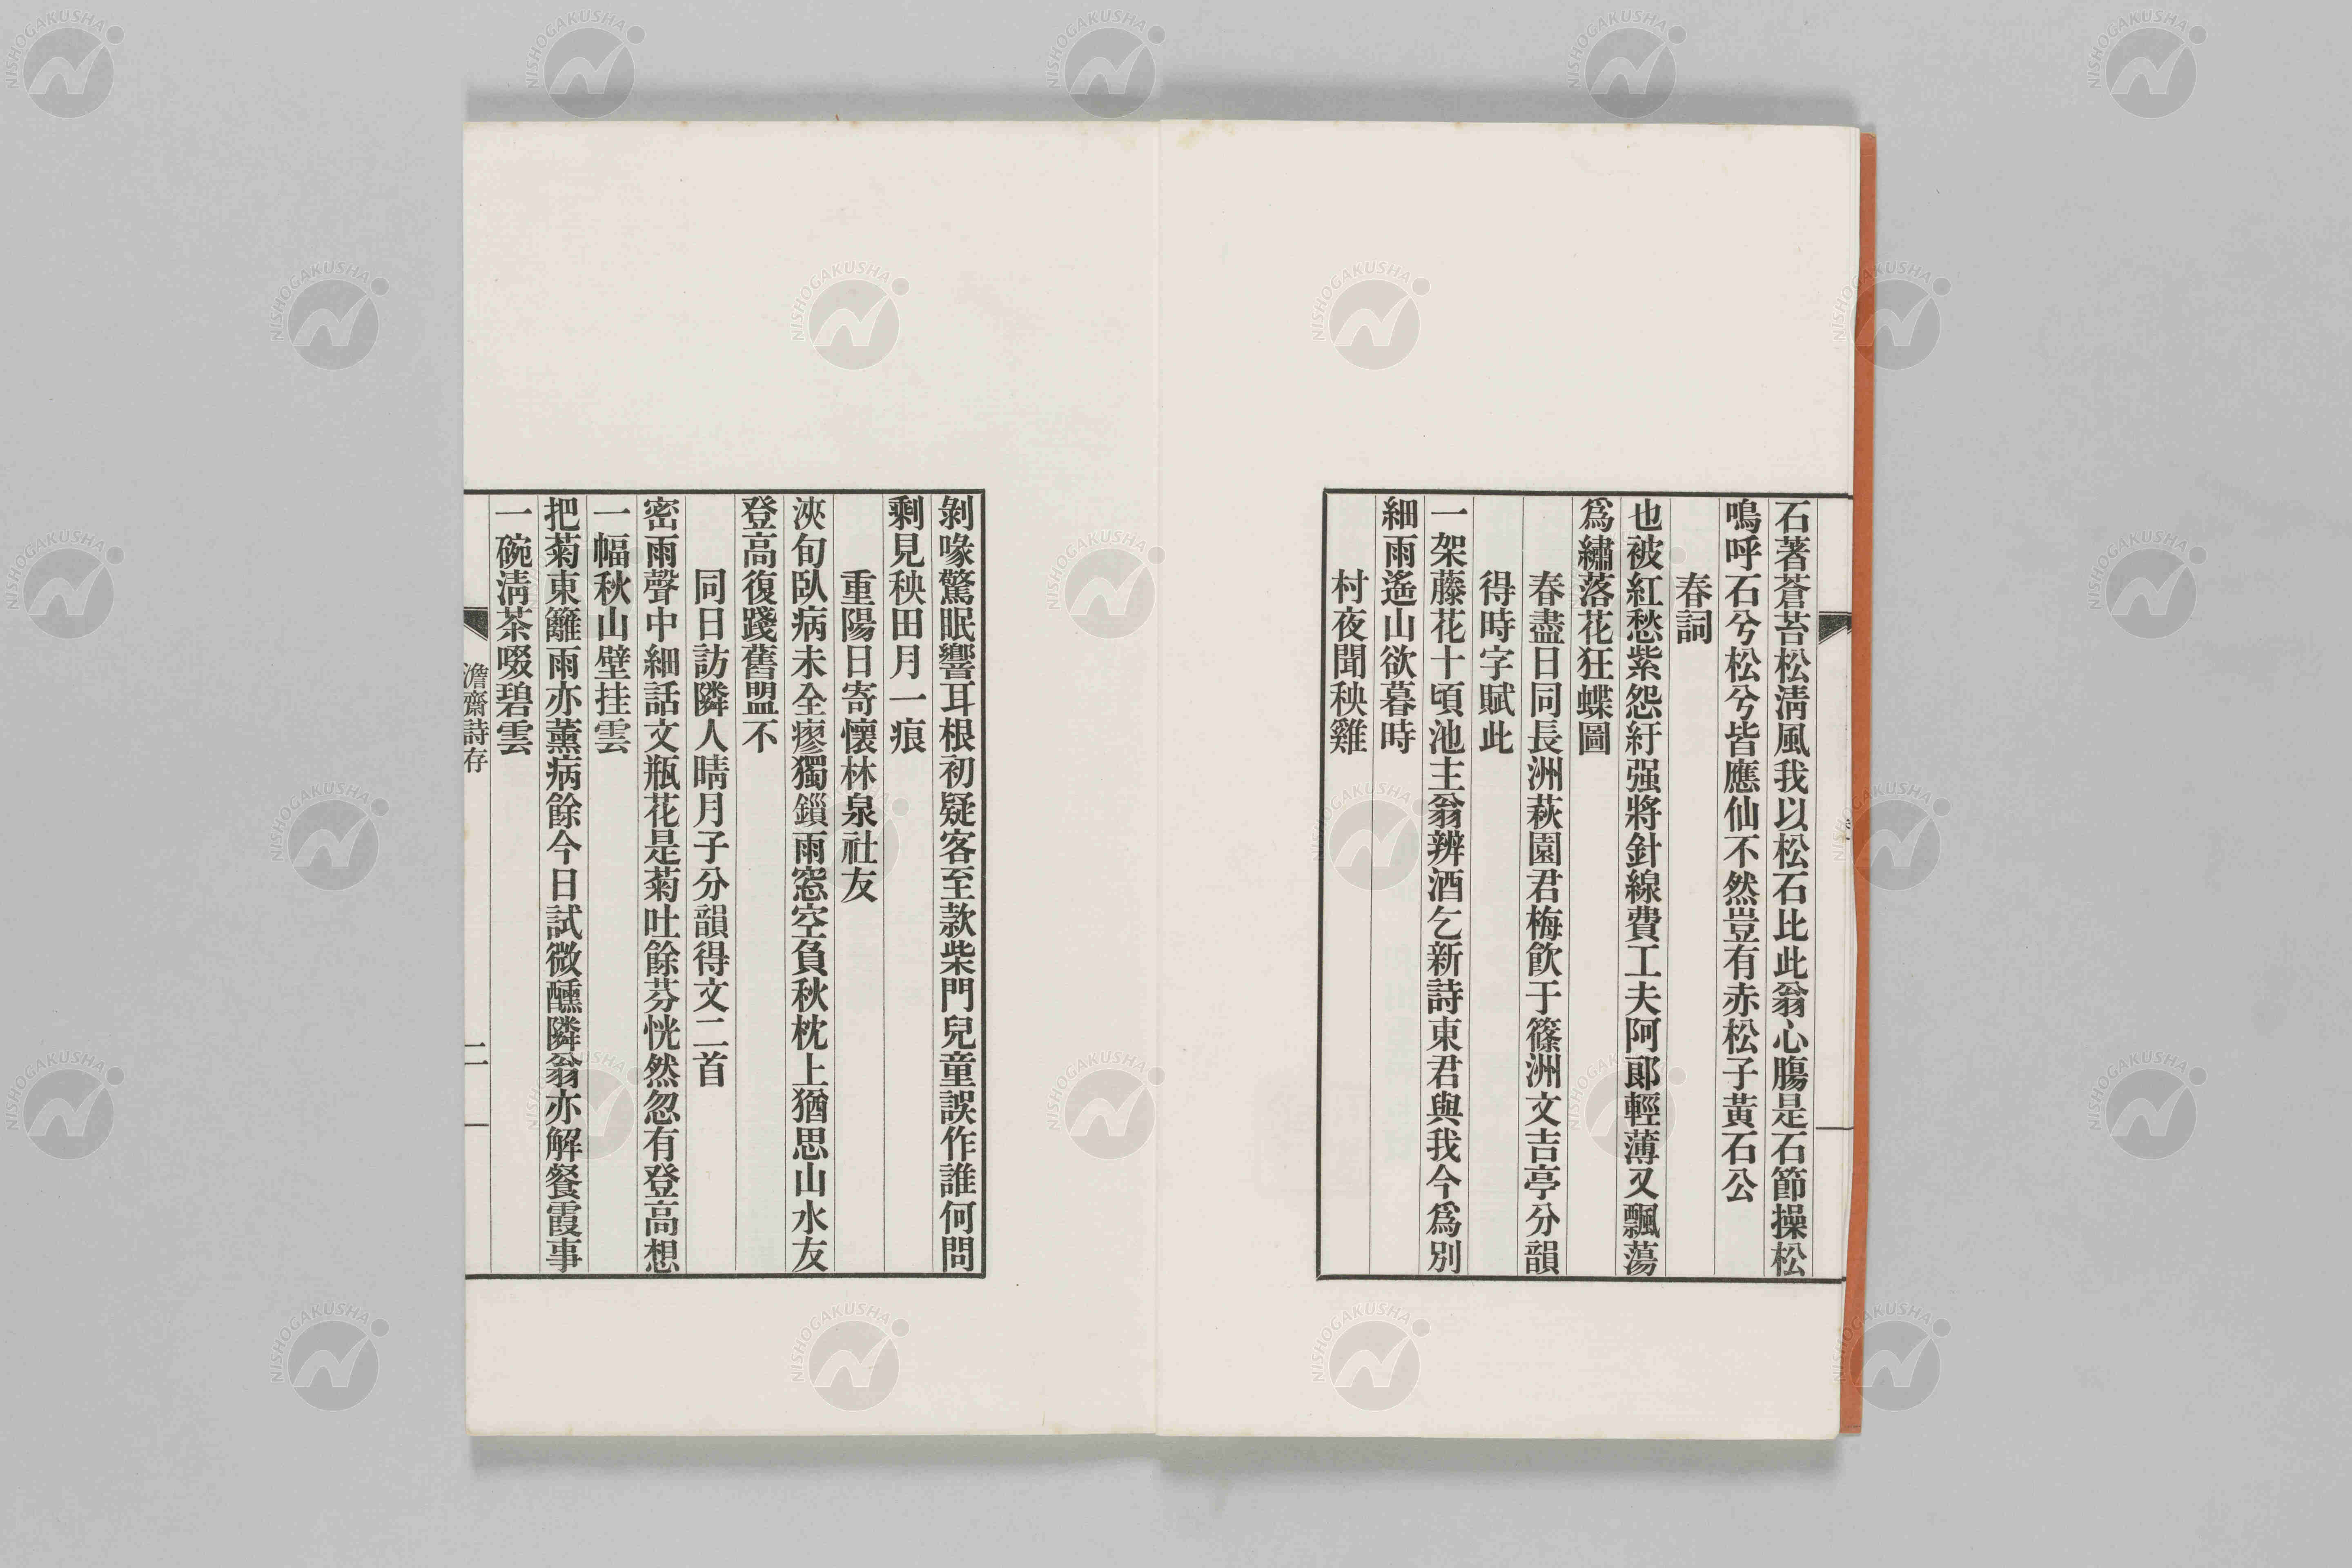 石著蒼苔松淸風我以松石比此翁心膓是石節操松
嗚呼石兮松兮皆應仙不然豈有赤松子黃石公
春詞
也被紅愁紫怨紆强將針線費工夫阿郞輕薄又飄蕩
爲繡落花狂蝶圖
春盡日同長洲萩園君梅飮于篠洲文吉亭分韻
得時字賦此
一架藤花十頃池主翁辨酒乞新詩東君與我今爲別
細雨遙山欲暮時
村夜聞秧雞
剝喙驚眠響耳根初疑客至款柴門兒童誤作誰何問
剩見秧田月一痕
重陽日寄懷林泉社友
浹旬臥病未全瘳獨鎻雨窓空負秋枕上猶思山水友
登高復踐舊盟不
同日訪隣人晴月子分韻得文二首
密雨聲中細話文瓶花是菊吐餘芬恍然忽有登高想
一幅秋山壁挂雲
把菊東籬雨亦薰病餘今日試微醺隣翁亦解餐霞事
一碗淸茶啜碧雲
澹齋詩存
二
NISHOGAKUSHA